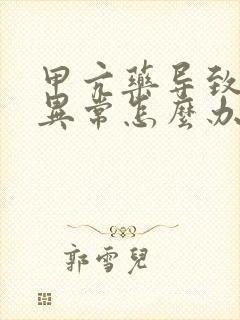 甲亢药导致
異常怎麼办
郭雪兒